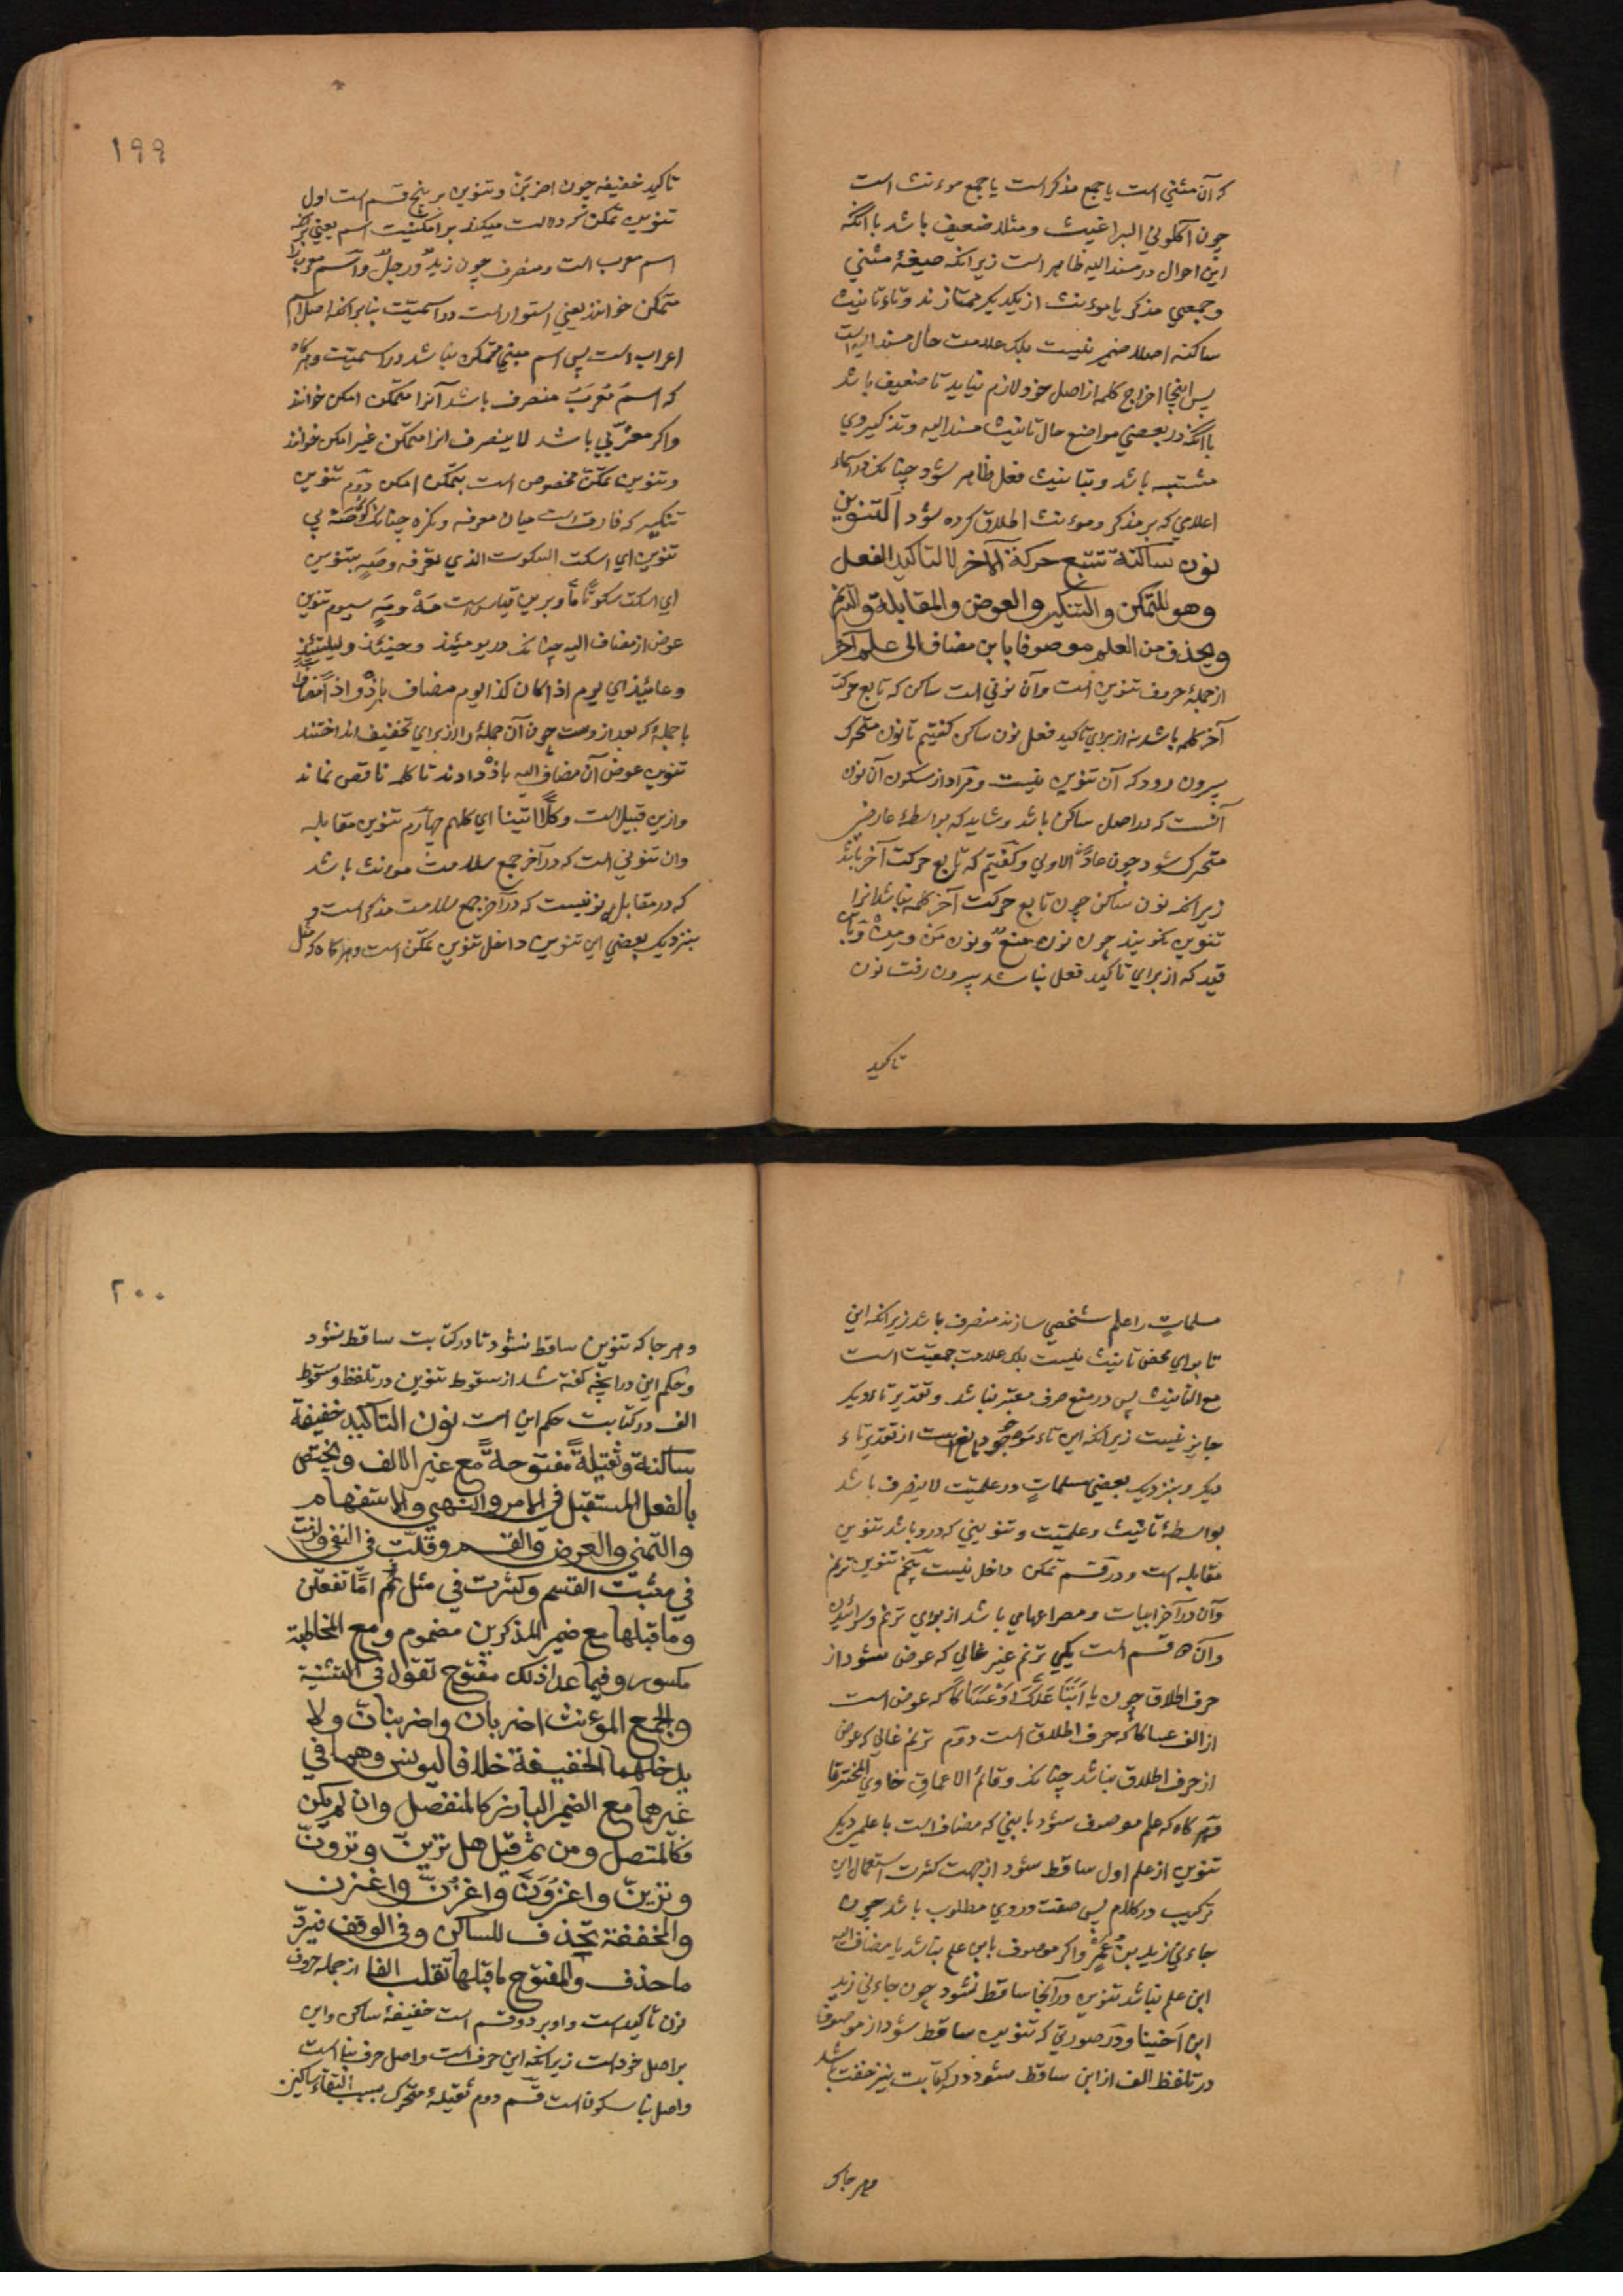 که آن مثنی است یا جمع مذکر است یا جمع موءنث است
چون اکلونی البراغیث و مثلا ضعیف باشد با آنکه
این احوال در مسند الیه ظاهر است زیرا نکه صیغهٔ مثنی
و جمعی مذکر یا موءنث از یکدیکر ممتازند و تاء تانیث
ساکنه اصلا ضمیر نیست بلکه علامت حال مسند الیه است
پس اینجا اخراج کلمه از اصل خود لازم نیاید تا ضعیف باشد
با آنکه در بعضی مواضع حال تانیث مسند الیه و تذکیر وی
مشتبه باشد و بتانیث فعل ظاهر شود چنانکه در اسماء
اعلامی که بر مذکر و موءنث اطلاق کرده شود التنوین
نون ساکنة تتبع حرکة الآخر لا لتاکید الفعل
وهو للتمکن والتنکیر والعوض والمقابلة والترنم
ویحذف من العلم موصوفا بابن مضاف الی علم آخر
از جملهٔ حروف تنوین است و آن نونی است ساکن که تابع حرکت
آخر کلمه باشد نه از برای تاکید فعل نون ساکن کفتیم تا نون متحرک
بیرون رود که آن تنوین نیست و مراد از سکون آن نون
آنست که در اصل ساکن باشد و شاید که بواسطهٔ عارضی
متحرک شود چون عادا الاولی و کفتیم که تابع حرکت آخر باشد
زیرا نکه نون ساکن چون تابع حرکت آخر کلمه نباشد انرا
تنوین نکویند چون نون منع و نون من و بدین
قید که از برای تاکید فعل نباشد بیرون رفت نون
تاکید
۱۹۹
تاکید خفیفه چون اضربن و تنوین بر پنج قسم است اول
تنوین تمکن که دلالت میکند بر امکنیت اسم یعنی بر انکه
اسم معرب است و منصرف چون زید و رجل و اسم معرب را
متمکن خوانند یعنی استوار است در اسمیت بنا بر انکه اصل اسم
اعراب است پس اسم مبنی متمکن نباشد در اسمیت و هرگاه
که اسم معرب منصرف باشد آنرا متمکن امکن خوانند
واکر معربی باشد لا ینصرف انرا متمکن غیر امکن خوانند
و تنوین تمکن مخصوص است بتمکن امکن دوم تنوین
تنکیر که فارق است میان معرفه و نکره چنانکه صه بی
تنوین ای اسکت السکوت الذی تعرفه و صه بتنوین
ای اسکت سکوتا ما و برین قیاس است مه و مه سیوم تنوین
عوض از مضاف الیه چنانکه در یومئذ و حینئذ و لیلتئذ
و عامئذ ای یوم اذ کان کذا یوم مضاف باذ و اذ مضاف
با جملهٔ که بعد از وست چون آن جمله را از برای تخفیف انداختند
تنوین عوض آن مضاف الیه باذ دادند تا کلمه ناقص نماند
و ازین قبیل است و کلا اتینا ای کلهم چهارم تنوین مقابله
وان تنونی است که در آخر جمع سلامت مونث باشد
که در مقابل نونیست که در آخر جمع سلامت مذکر است و
بنزدیک بعضی این تنوین داخل تنوین تمکن است و هرگاه که مثل
مسلمات را علم شخصی سازند منصرف باشد زیرا نکه این
تا برای محض تانیث نیست بلکه علامت جمعیت است
مع التانیث پس در منع صرف معتبر نباشد و تقدیر تاء دیکر
جایز نیست زیرا نکه این تاء موجود مانع است از تقدیر تاء
دیکر و بنزدیک بعضی مسلمات در علمیت لا ینصرف باشد
بواسطهٔ تانیث و علمیت و تنوینی که درو باشد تنوین
مقابله است و در قسم تمکن داخل نیست پنجم تنوین ترنم
وآن در آخر ابیات و مصراعهای باشد از برای ترنم و سرائیدن
وآن دو قسم است یکی ترنم غیر غالی که عوض شود از
حرف اطلاق چون یا ابتا علک او عساکا که عوض است
از الف عساکا که حرف اطلاق است دوم ترنم غالی که عوض
از حرف اطلاق نباشد چنانکه وقائم الاعماق خاوی المخترقا
و هرگاه که علم موصوف شود بابنی که مضاف است با علمی دیکر
تنوین از علم اول ساقط شود از جهت کثرت استعمال این
ترکیب در کلام پس صفت در وی مطلوب باشد چون
جاءنی زید بن عمرو واکر موصوف بابن علم نباشد یا مضاف الیه
ابن علم نباشد تنوین در آنجا ساقط نشود چون جاءنی زید
ابن اخینا و در صورتی که تنوین ساقط شود از موصوف
در تلفظ الف از ابن ساقط شود در کتابت نیز خفت باشد
و هر جاکه
۲۰۰
و هر جا که تنوین ساقط نشود تا در کتابت ساقط نشود
و حکم این در ابنه کفته شد از سقوط تنوین در تلفظ و سقوط
الف در کتابت حکم این است نون التاکید خفیفة
ساکنة وثقیلة مفتوحة مع غیر الالف ویختص
بالفعل المستقبل فی الامر والنهی والاستفهام
والتمنی والعرض والقسم وقلت فی النفی ولزمت
فی مثبت القسم وکثرت فی مثل اما تفعلن
وما قبلها مع ضمیر المذکرین مضموم ومع المخاطبة
مکسور وفیما عدا ذلک مفتوح تقول فی التثنیة
والجمع الموءنث اضربان واضربنان ولا
یدخلهما الخفیفة خلافا لیونس وهما فی
غیرهما مع الضمیر البارز کالمنفصل وان لم یکن
فکالمتصل ومن ثم قیل هل ترین وترون
وترین واغزون واغزن واغزن
والمخففة تحذف للساکن وفی الوقف فیرد
ما حذف والمفتوح ما قبلها تقلب الفا از جمله حروف
نون تاکید است و او بر دو قسم است خفیفهٔ ساکن و این
بر اصل خود است زیرا نکه این حرف است و اصل حرف بنا است
و اصل بنا سکون است قسم دوم ثقیلهٔ متحرک بسبب التقاء ساکنین